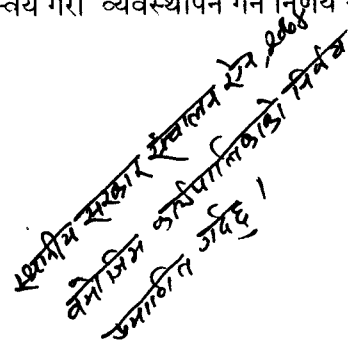 न्वय गरी व्यवस्थापन गर्ने निर्णय
स्थानीय सरकार संचालन ऐन, २०७४
बमोजिम कार्यपालिकाको निर्णय
प्रमाणित गर्दछु ।